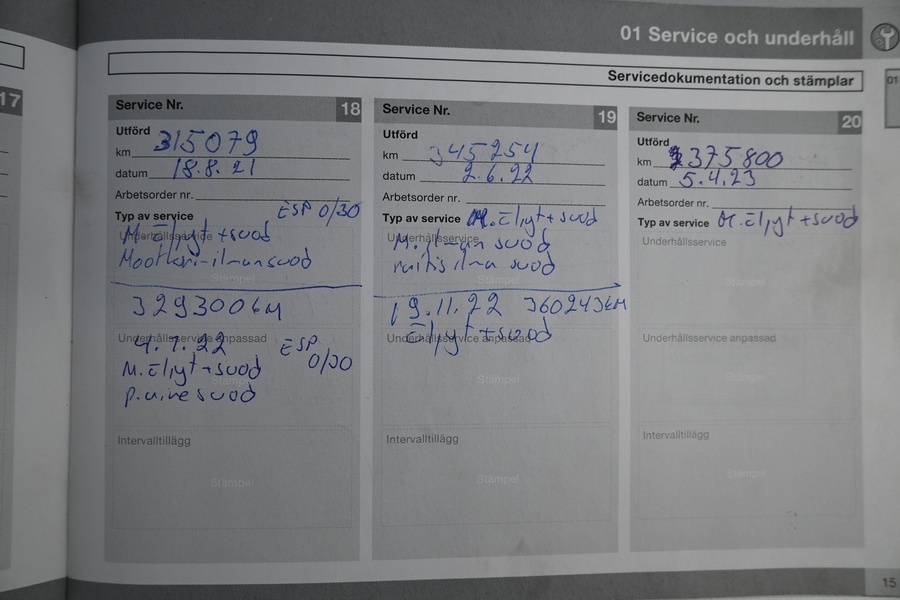 01 Service och underhåll
Servicedokumentation och stämplar
01
17
Service Nr. 18
Utförd
km 315079
datum 18.8.21
Arbetsorder nr.
Typ av service ESP 0/30
Underhållsservice
M.öljyt + suod
Moottori-ilmansuod
Stämpel
329300km
Underhållsservice anpassad
4.1.22 ESP
0/30
M.öljyt + suod
Stämpel
Intervalltillägg
Stämpel
Service Nr. 19
Utförd
km 345254
datum 2.6.22
Arbetsorder nr.
Typ av service M.öljyt + suod
Underhållsservice
M.ilman suod
raitis ilma suod
19.11.22 360243km
Underhållsservice anpassad
öljyt + suod
Stämpel
Intervalltillägg
Stämpel
Service Nr. 20
Utförd
km 375800
datum 5.4.23
Arbetsorder nr.
Typ av service M.öljyt + suod
Underhållsservice
Stämpel
Underhållsservice anpassad
Stämpel
Intervalltillägg
Stämpel
15